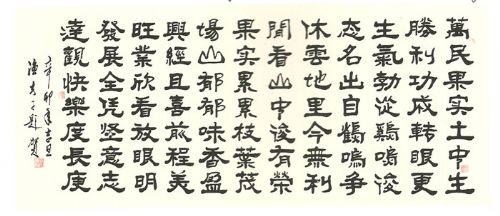 萬民果实土中生
勝利功成轉眼更
生氣勃從鷄鳴後
态名出自鶴鳴争
休雲地里今無利
閒看山中後有榮
果实累累枝葉茂
場山郁郁味香盈
興經且喜前程美
旺業欣看放眼明
發展全凭坚意志
達觀快樂度長庚
辛卯年